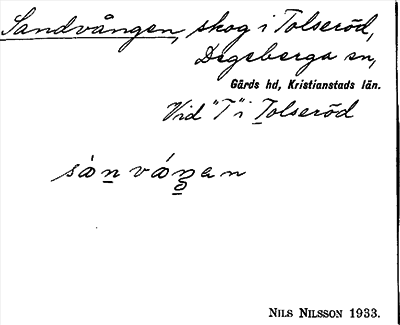 Sandvången, skog i Tolseröd,
Degeberga sn,
Gärds hd, Kristianstads län.
Vid "T" i Tolseröd
NILS NILSSON 1933.